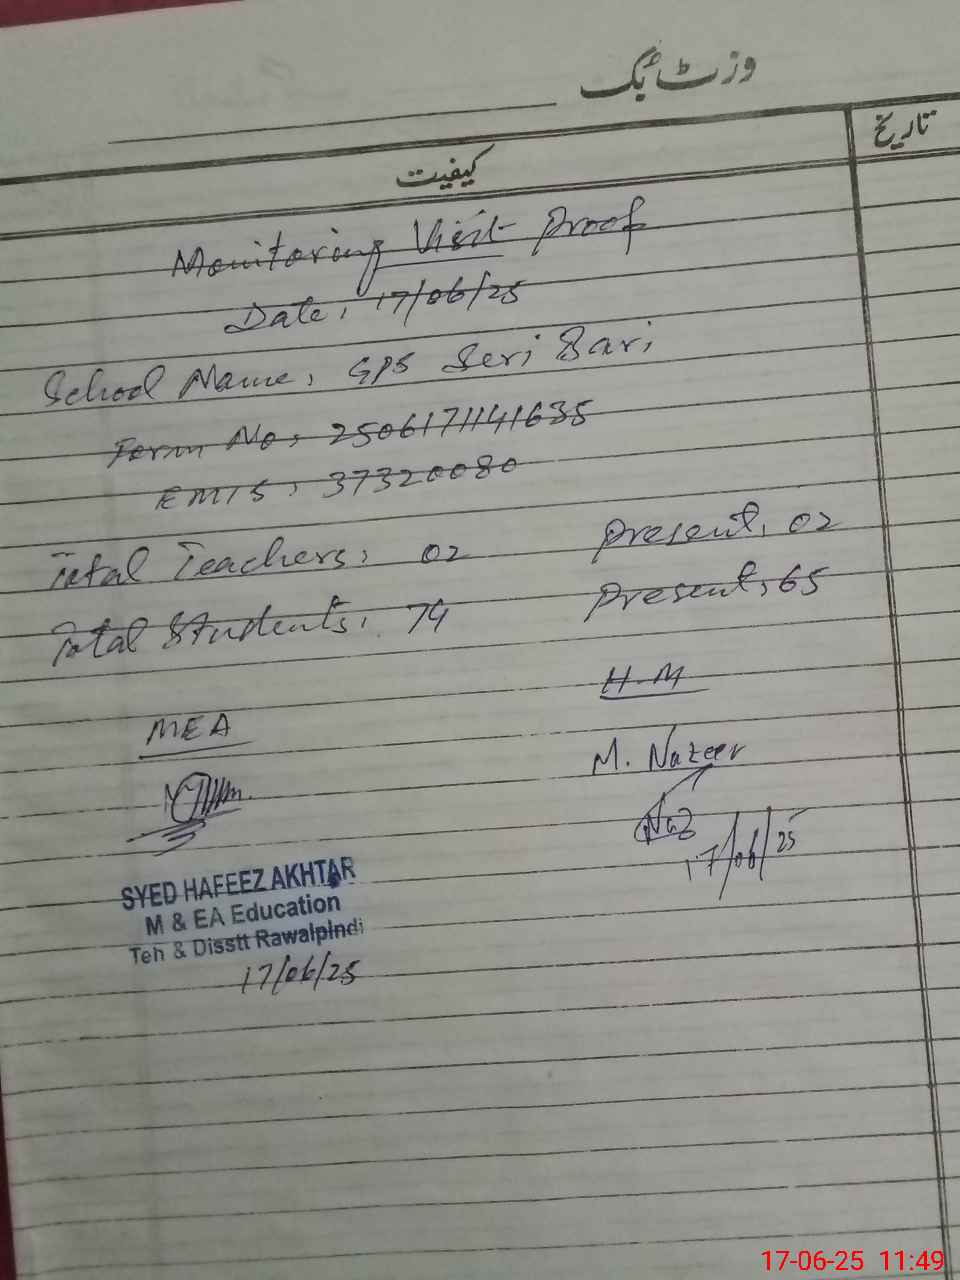 وزٹ بُک
تاریخ
کیفیت
Monitoring Visit Proof
Date, 17/06/25
School Name, GPS Seri Bari
Form No, 2506171141635
EMIS, 37320080
Total Teachers, 02 Present, 02
Total Students, 74 Present, 65
MEA
H.M
M. Nazeer
Naz
17/06/25
SYED HAFEEZ AKHTAR
M & EA Education
Teh & Disstt Rawalpindi
17/06/25
17-06-25 11:49